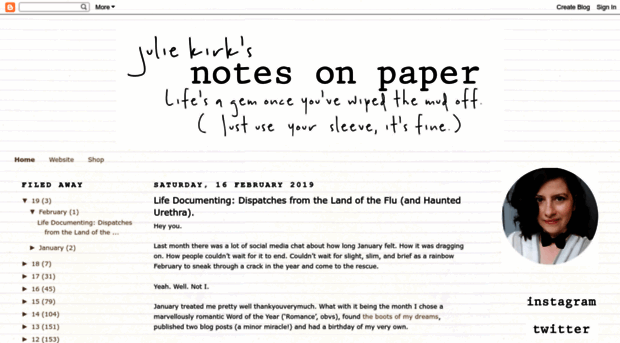 More
Create Blog Sign In
julie kirk's
notes on paper
Life's a gem once you've wiped the mud off.
( Just use your sleeve, it's fine.)
Home Website Shop
FILED AWAY
▼ 19 (3)
▼ February (1)
Life Documenting: Dispatches
from the Land of the ...
► January (2)
► 18 (7)
► 17 (31)
► 16 (45)
► 15 (79)
► 14 (104)
► 13 (151)
► 12 (153)
SATURDAY, 16 FEBRUARY 2019
Life Documenting: Dispatches from the Land of the Flu (and Haunted
Urethra).
Hey you.
Last month there was a lot of social media chat about how long January felt. How it was dragging
on. How people couldn't wait for it to end. Couldn't wait for slight, slim, and brief as a rainbow
February to sneak through a crack in the year and come to the rescue.
Yeah. Well. Not I.
January treated me pretty well thankyouverymuch. What with it being the month I chose a
marvellously romantic Word of the Year ('Romance', obvs), found the boots of my dreams,
published two blog posts (a minor miracle!) and had a birthday of my very own.
instagram
twitter